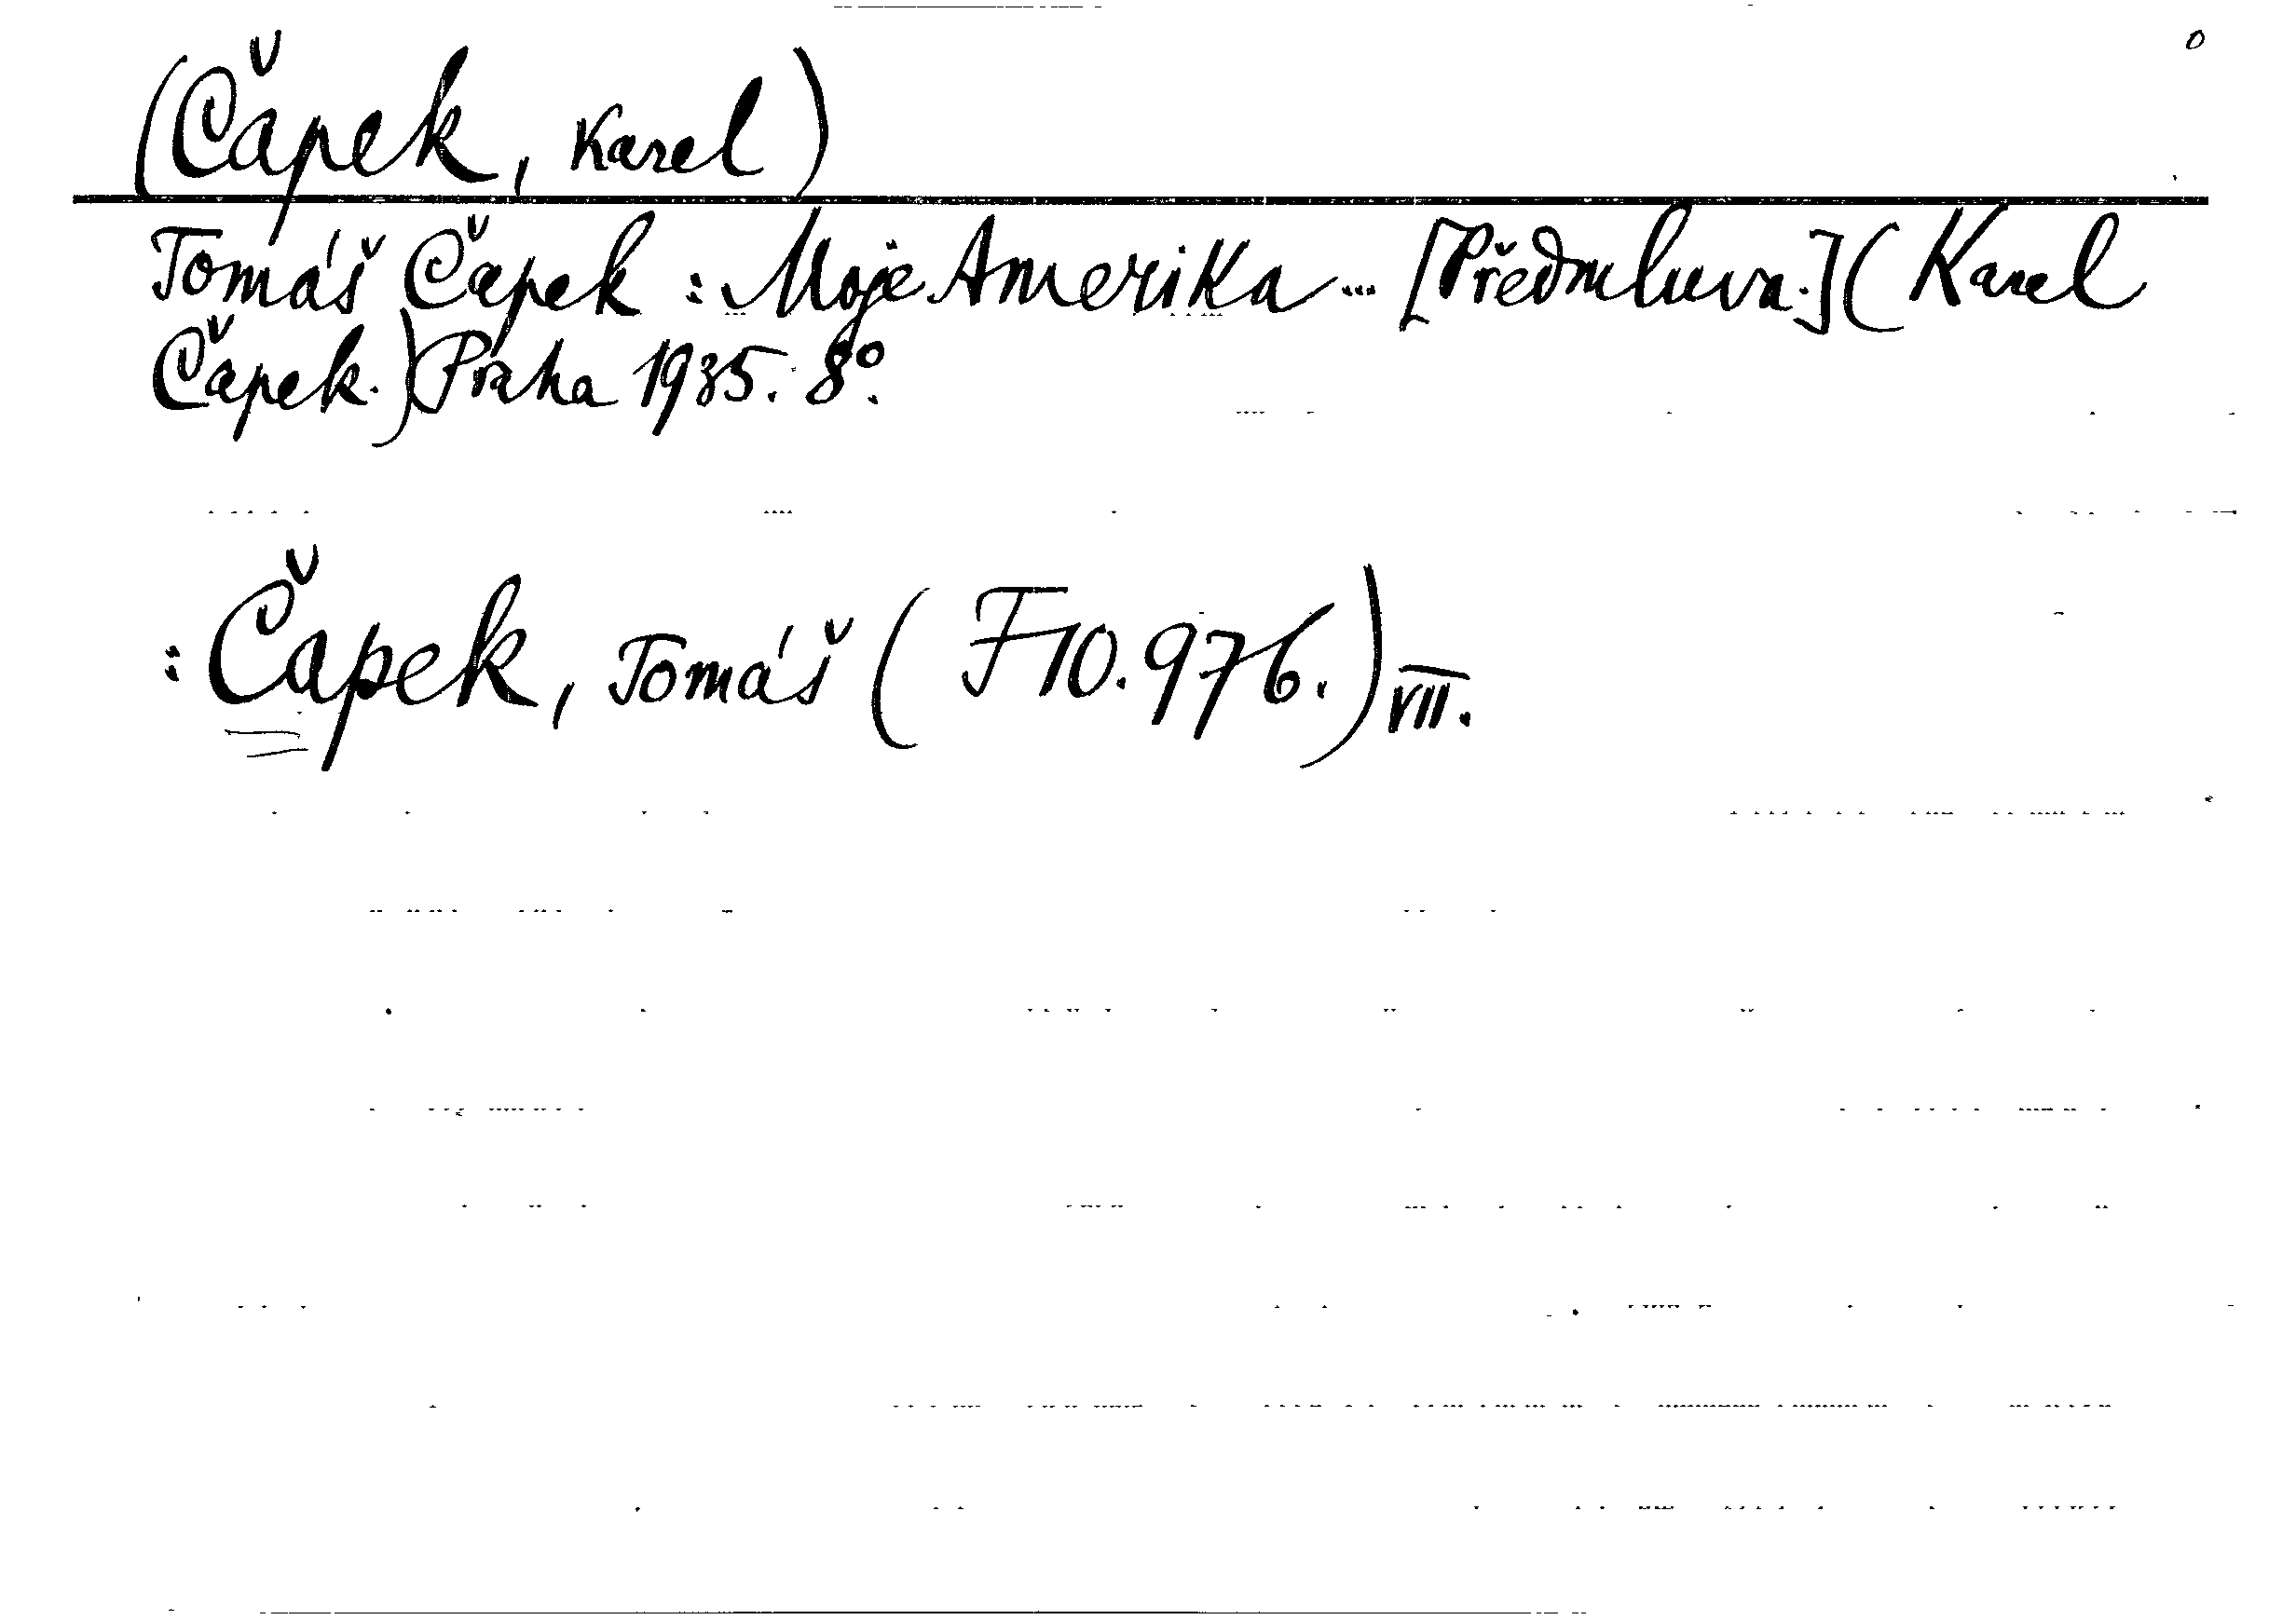 (Čapek, Karel)
Tomáš Čapek: Moje Amerika... [Předmluva.] (Karel
Čapek.) Praha 1935. 8°.
: Čapek, Tomáš (F 10.976.) VII.